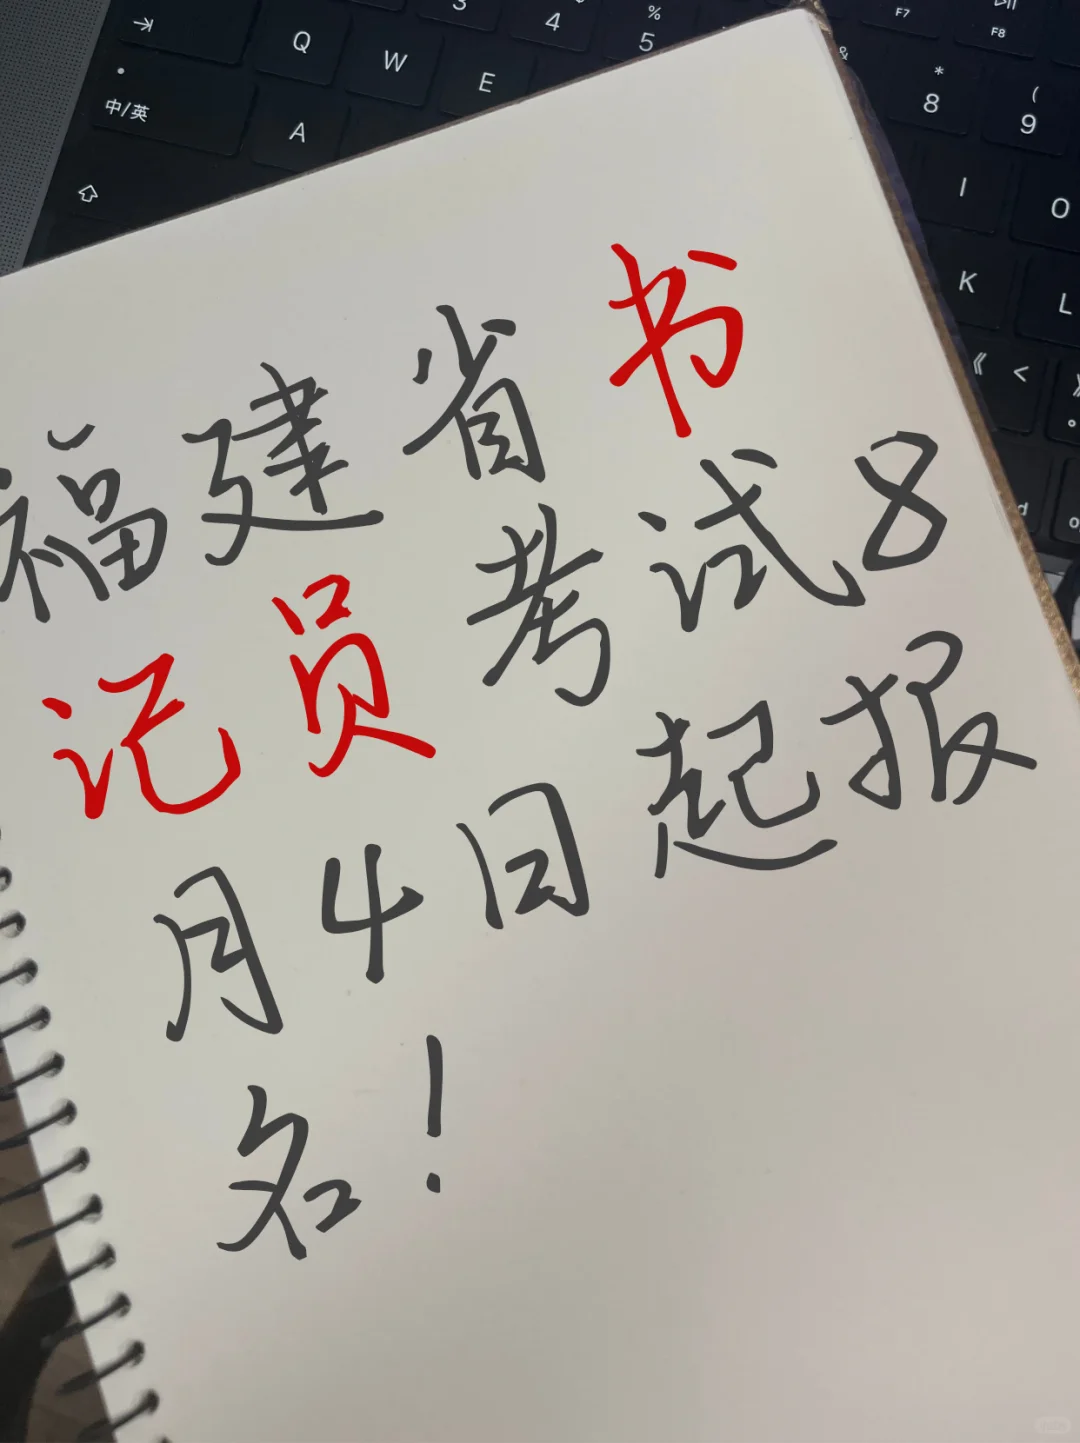 福建省书
记员考试8
月4日起报
名！
Q W E
A
中/英
3 4 % 5
& * 8 ( 9
F7 F8
I O
K L
《 <